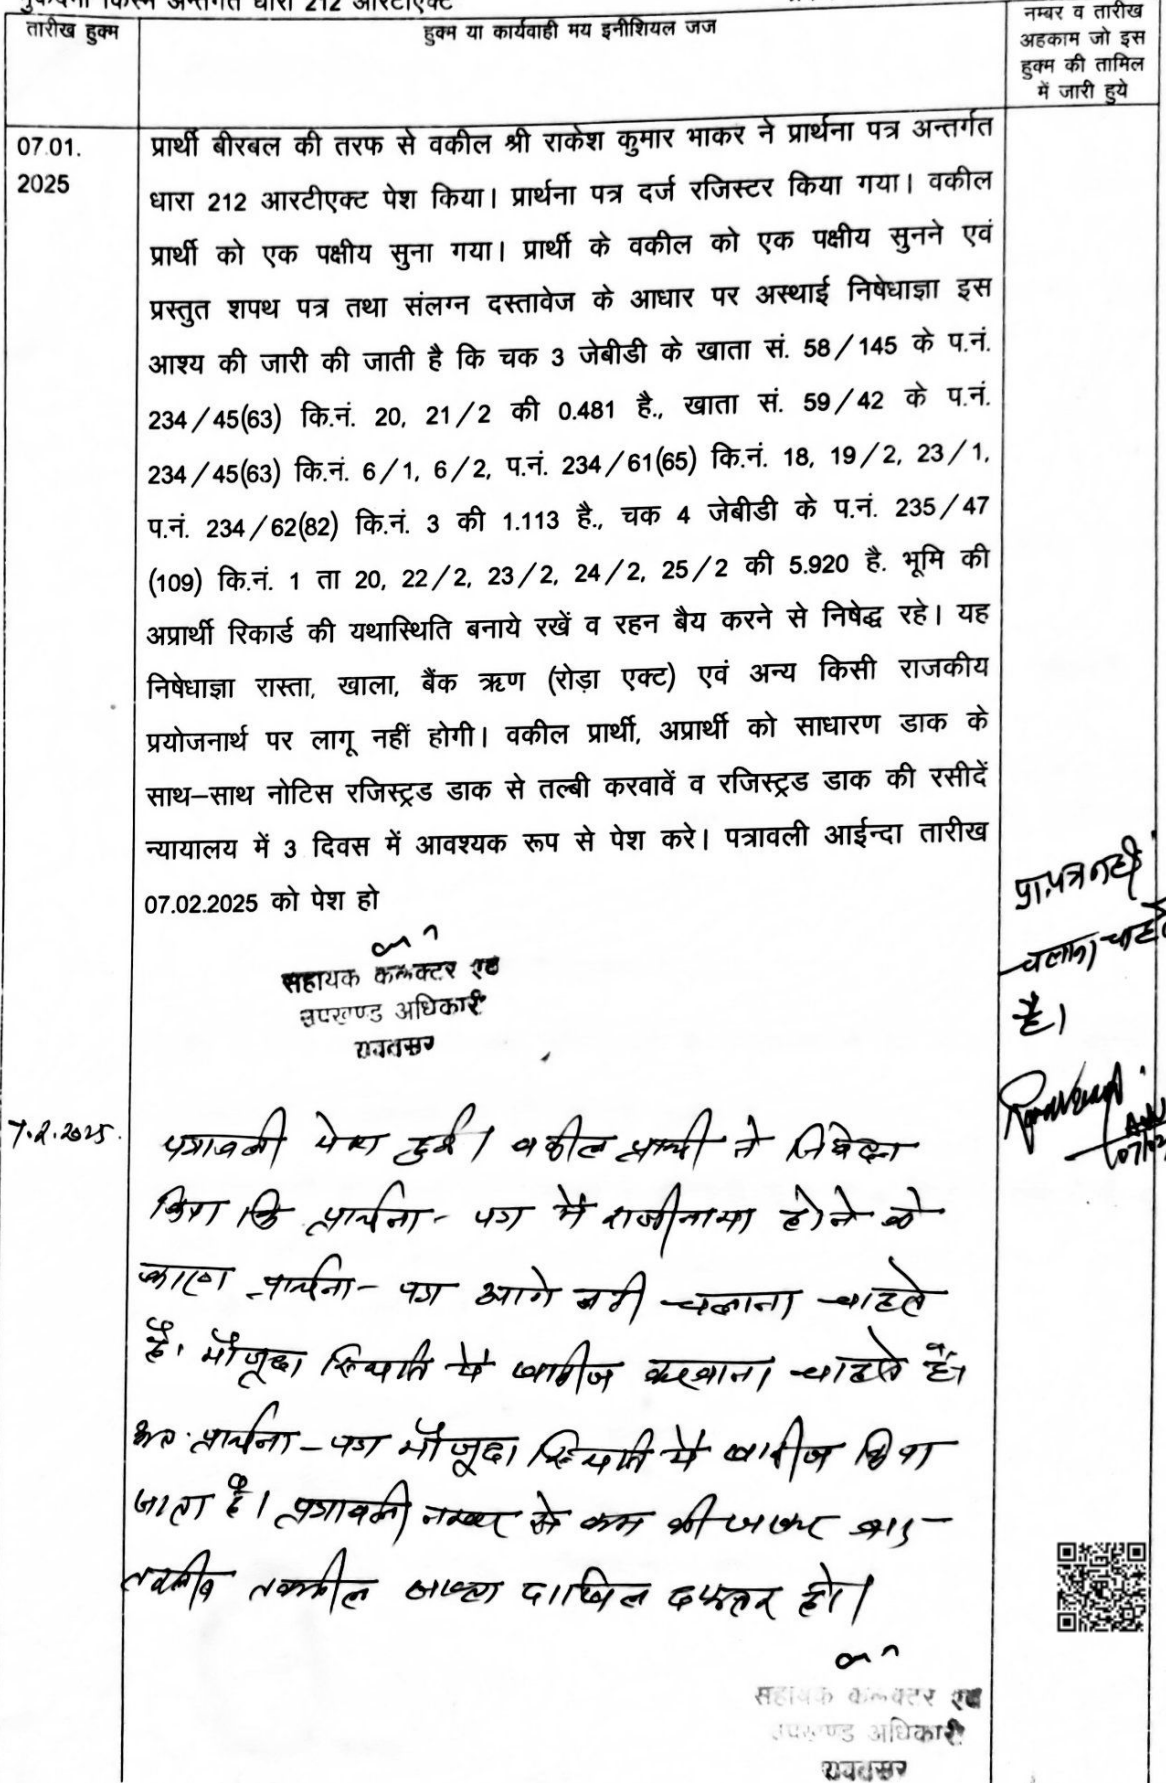 मुकदमा किस्म अन्तर्गत धारा 212 आरटीएक्ट
तारीख हुक्म
हुक्म या कार्यवाही मय इनीशियल जज
नम्बर व तारीख
अहकाम जो इस
हुक्म की तामिल
में जारी हुये
07.01.
2025
प्रार्थी बीरबल की तरफ से वकील श्री राकेश कुमार भाकर ने प्रार्थना पत्र अन्तर्गत
धारा 212 आरटीएक्ट पेश किया। प्रार्थना पत्र दर्ज रजिस्टर किया गया। वकील
प्रार्थी को एक पक्षीय सुना गया। प्रार्थी के वकील को एक पक्षीय सुनने एवं
प्रस्तुत शपथ पत्र तथा संलग्न दस्तावेज के आधार पर अस्थाई निषेधाज्ञा इस
आश्य की जारी की जाती है कि चक 3 जेबीडी के खाता सं. 58/145 के प.नं.
234/45(63) कि.नं. 20, 21/2 की 0.481 है., खाता सं. 59/42 के प.नं.
234/45(63) कि.नं. 6/1, 6/2, प.नं. 234/61(65) कि.नं. 18, 19/2, 23/1,
प.नं. 234/62(82) कि.नं. 3 की 1.113 है., चक 4 जेबीडी के प.नं. 235/47
(109) कि.नं. 1 ता 20, 22/2, 23/2, 24/2, 25/2 की 5.920 है. भूमि की
अप्रार्थी रिकार्ड की यथास्थिति बनाये रखें व रहन बैय करने से निषेद्ध रहे। यह
निषेधाज्ञा रास्ता, खाला, बैंक ऋण (रोड़ा एक्ट) एवं अन्य किसी राजकीय
प्रयोजनार्थ पर लागू नहीं होगी। वकील प्रार्थी, अप्रार्थी को साधारण डाक के
साथ–साथ नोटिस रजिस्ट्रड डाक से तल्बी करवावें व रजिस्ट्रड डाक की रसीदें
न्यायालय में 3 दिवस में आवश्यक रूप से पेश करे। पत्रावली आईन्दा तारीख
07.02.2025 को पेश हो
सहायक कलक्टर एवं
उपखण्ड अधिकारी
रावतसर
प्रा.पत्र नहीं
चलाना चाहते
है।
7.2.2025.
पत्रावली पेश हुई। वकील प्रार्थी ने निवेदन
किया कि प्रार्थना-पत्र में राजीनामा होने के
कारण प्रार्थना-पत्र आगे नहीं चलाना चाहते
है। मौजूदा स्थिति में खारीज करवाना चाहते है।
अतः प्रार्थना-पत्र मौजूदा स्थिति में खारीज किया
जाता है। पत्रावली नम्बर से कम की जाकर बाद
तकमील दाखिल दफ्तर हो।
सहायक कलक्टर एवं
उपखण्ड अधिकारी
रावतसर